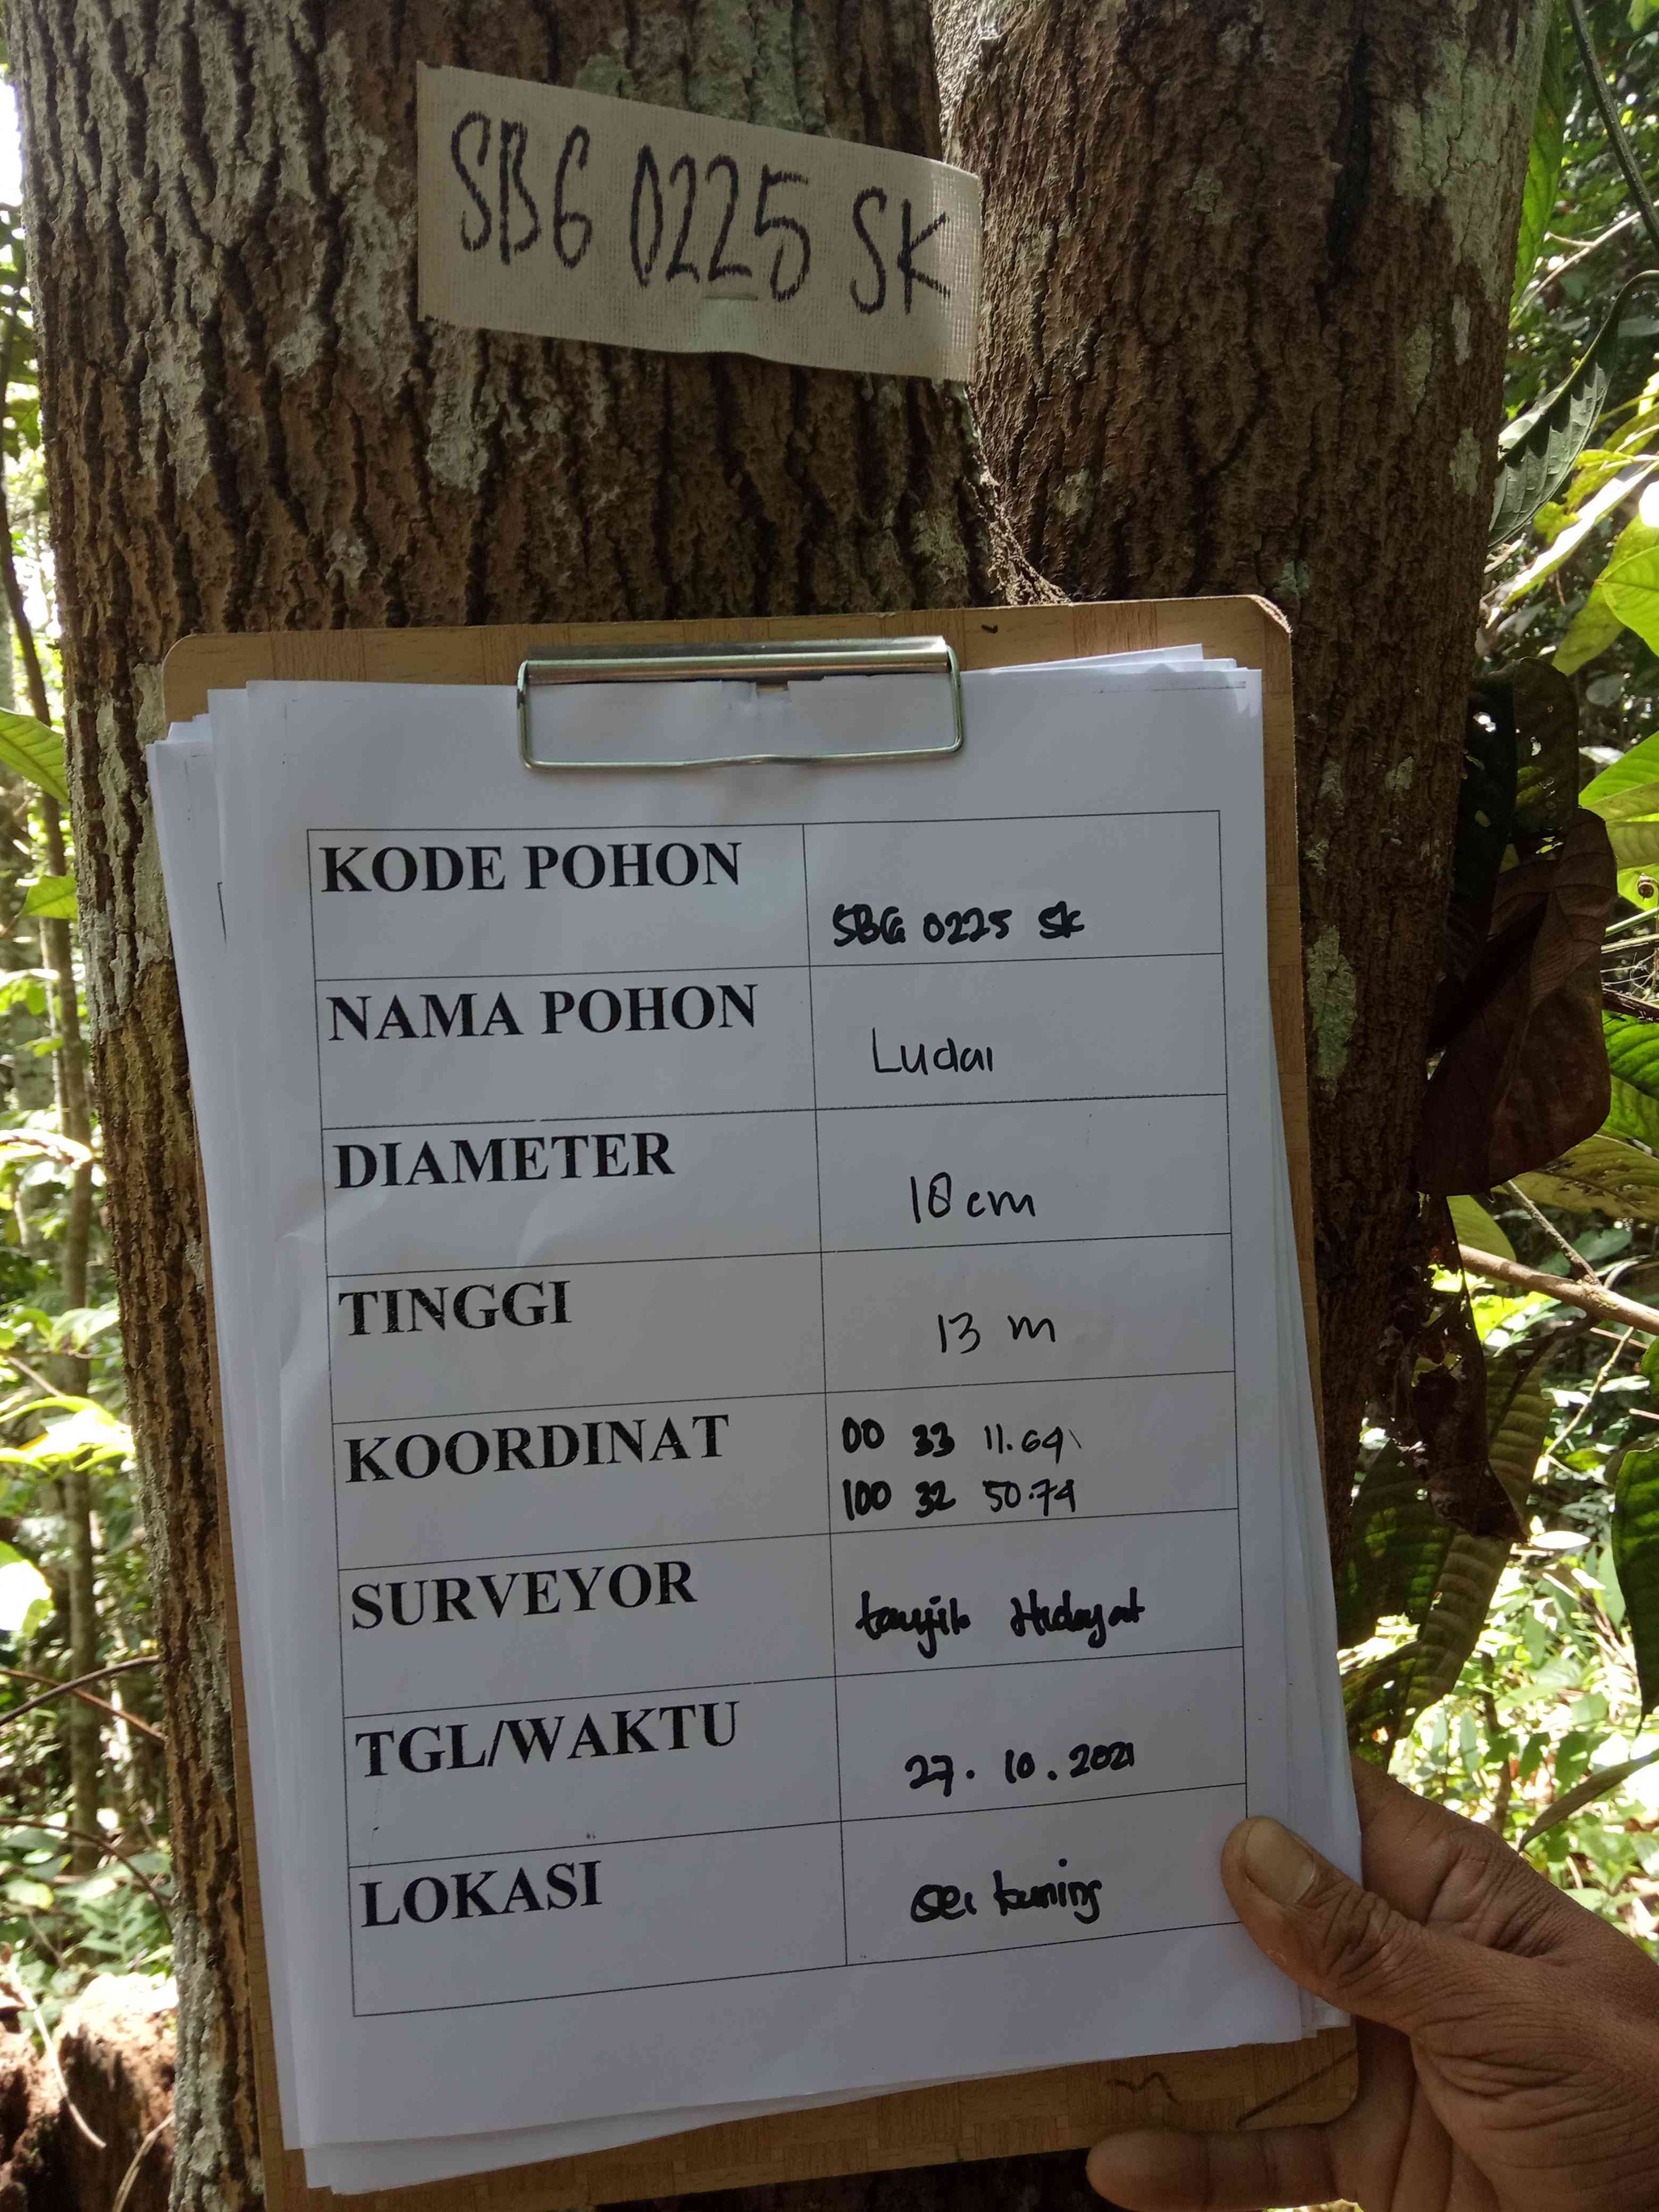 SBG 0225 SK
KODE POHON
SBG 0225 SK
NAMA POHON
Ludai
DIAMETER
18 cm
TINGGI
13 m
KOORDINAT
00 33 11.64
100 32 50.74
SURVEYOR
Hidayat
TGL/WAKTU
27. 10. 2021
LOKASI
Sei kuning